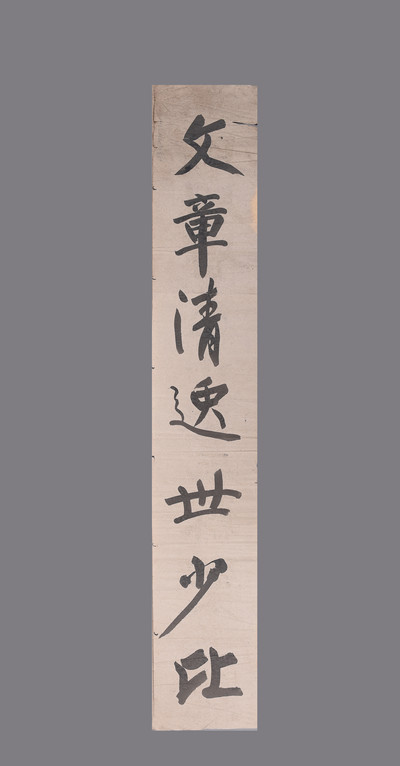 文章清逸世少比